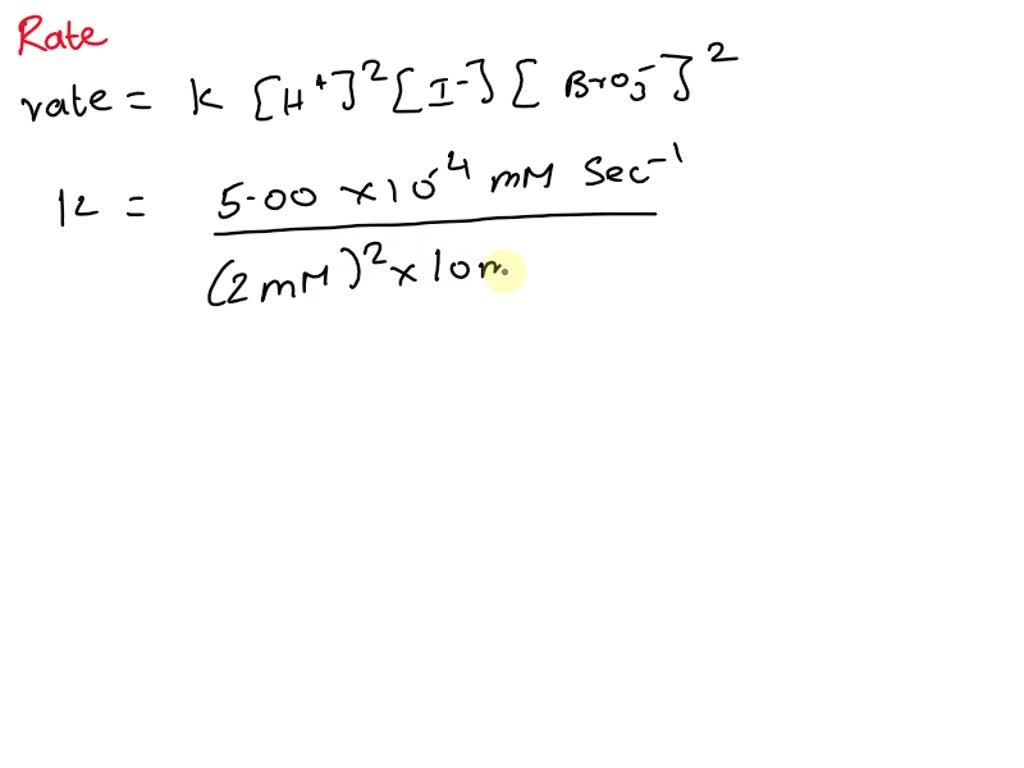 Rate
rate = k [H⁺]² [I⁻] [BrO₃⁻]²
k = 5.00 × 10⁻⁴ mM Sec⁻¹
(2 mM)² × 10